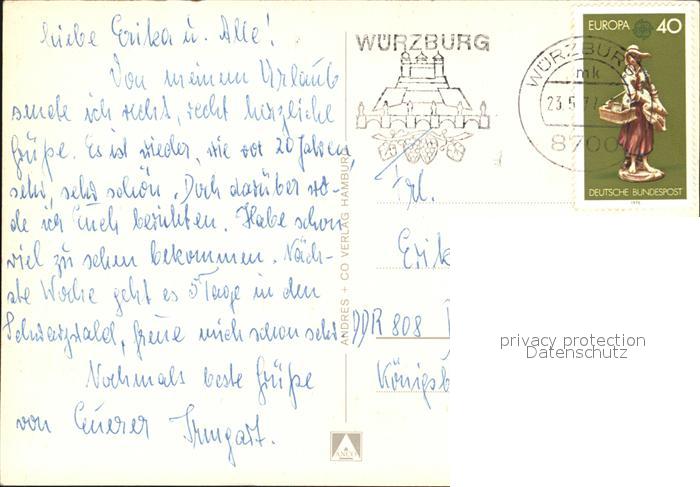 Liebe Erika u. Alle!
Von meinem Urlaub
sende ich recht, recht herzliche
Grüße. Es ist wieder, wie vor 20 Jahren,
sehr, sehr schön. Doch darüber wer-
de ich Euch berichten. Habe schon
viel zu sehen bekommen. Näch-
ste Woche geht es 5 Tage in den
Schwarzwald, freue mich schon sehr.
Nochmals beste Grüße
von Euerer Irmgart.
ANDRES + CO VERLAG HAMBURG
ANCO
WÜRZBURG
WÜRZBURG
mk
23.5.77
8700
EUROPA 40
DEUTSCHE BUNDESPOST
1976
Frl.
Erik
DDR 808
Königsb
privacy protection
Datenschutz